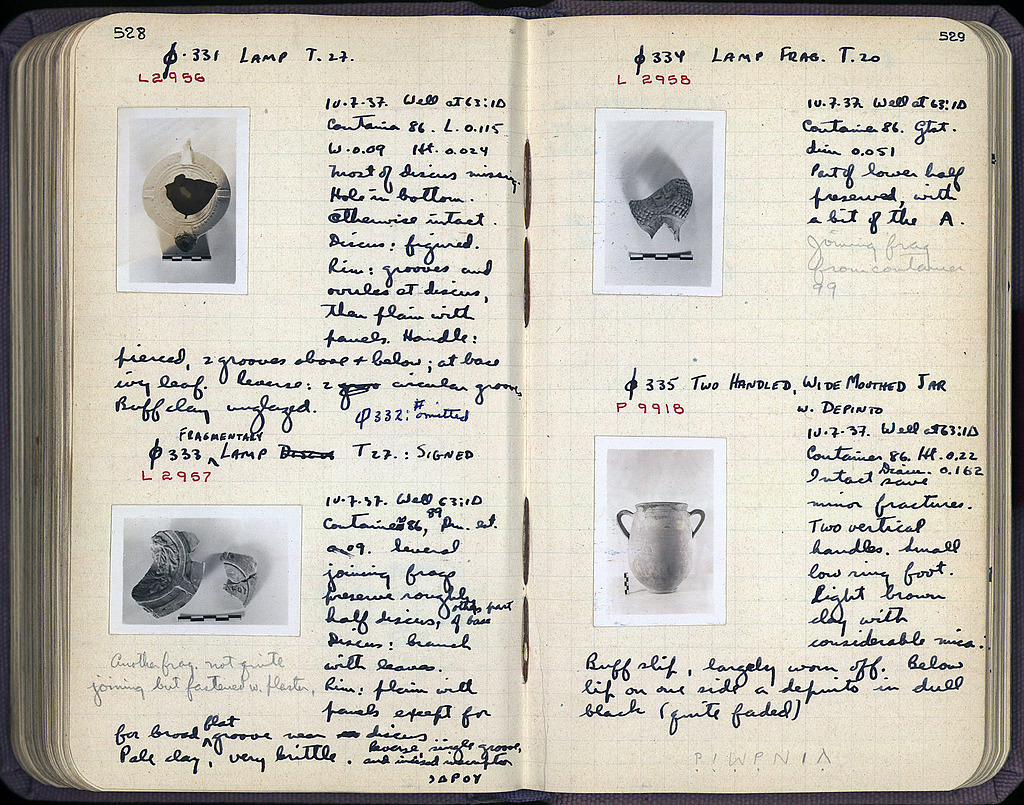 528
φ·331 LAMP T. 27.
L 2956
10.7.37. Well at 63:ΙΔ
Container 86. L. 0.115
W. 0.09 Ht. 0.024
Most of Discus missing.
Hole in bottom.
Otherwise intact.
Discus: figured.
Rim: grooves and
ovules at discus,
then plain with
panels. Handle:
pierced, 2 grooves above + below; at base
ivy leaf. Reverse: 2 circular grooves
Buff clay unglazed.
φ 332: # omitted
φ 333 FRAGMENTARY LAMP T 27. : SIGNED
L 2957
10.7.37. Well 63:ΙΔ
Containers 86, 89
0.09. Several
joining frags
preserve roughly
half discus, others part of base
Discus: branch
with leaves.
Rim: plain with
panels except for
Another frag. not quite
joining but fastened w. plaster,
for broad flat groove near discus.
Pale clay, very brittle. Reverse, single groove,
and incised inscription
529
φ 334 LAMP FRAG. T. 20
L 2958
10.7.37. Well at 63:ΙΔ
Container 86. Gtst.
dim 0.051
Part of lower half
preserved, with
a bit of the A.
Joining frag
from container
99
φ 335 TWO HANDLED, WIDE MOUTHED JAR
W. DEPINTO
P 9918
10.7.37. Well at 63:ΙΔ
Container 86. Ht. 0.22
Diam. 0.162
Intact save
minor fractures.
Two vertical
handles. Small
low ring foot.
Light brown
clay with
considerable mica.
Buff slip, largely worn off. Below
lip on one side a depinto in dull
black (quite faded)